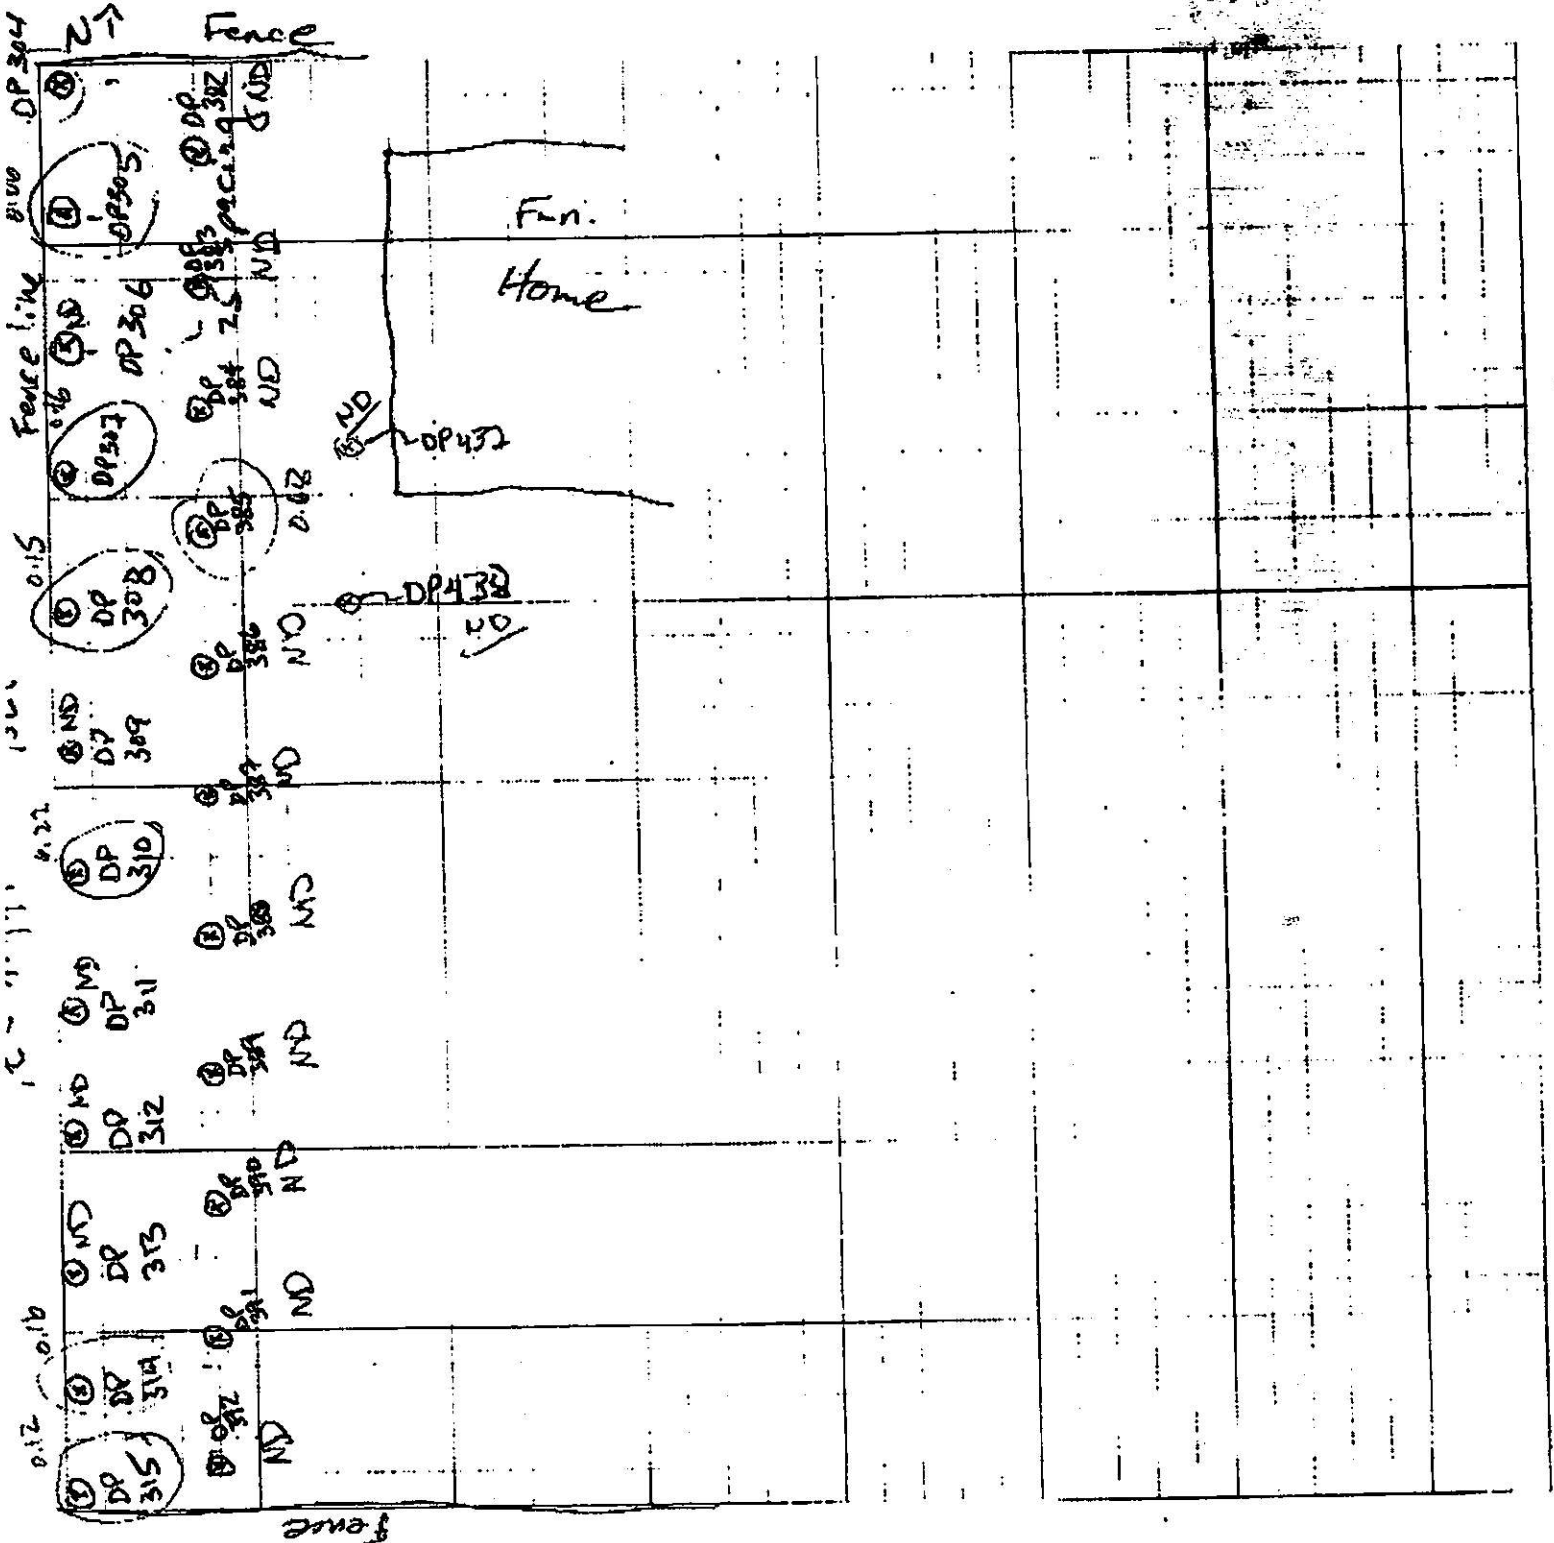 N→
Fence
DP304
DP305
Fence line
ND
DP306
0.16
DP307
0.15
DP
308
ND
DP
309
DP
310
ND
DP
311
ND
DP
312
ND
DP
313
0.16
DP
314
0.12
DP
315
DP
382
ND
25 spacing
DP
383
ND
DP
384
ND
DP
385
DP
386
ND
DP
387
ND
DP
388
ND
DP
389
ND
DP
390
ND
DP
391
ND
DP
392
ND
Fun.
Home
ND
DP437
DP438
ND
Fence